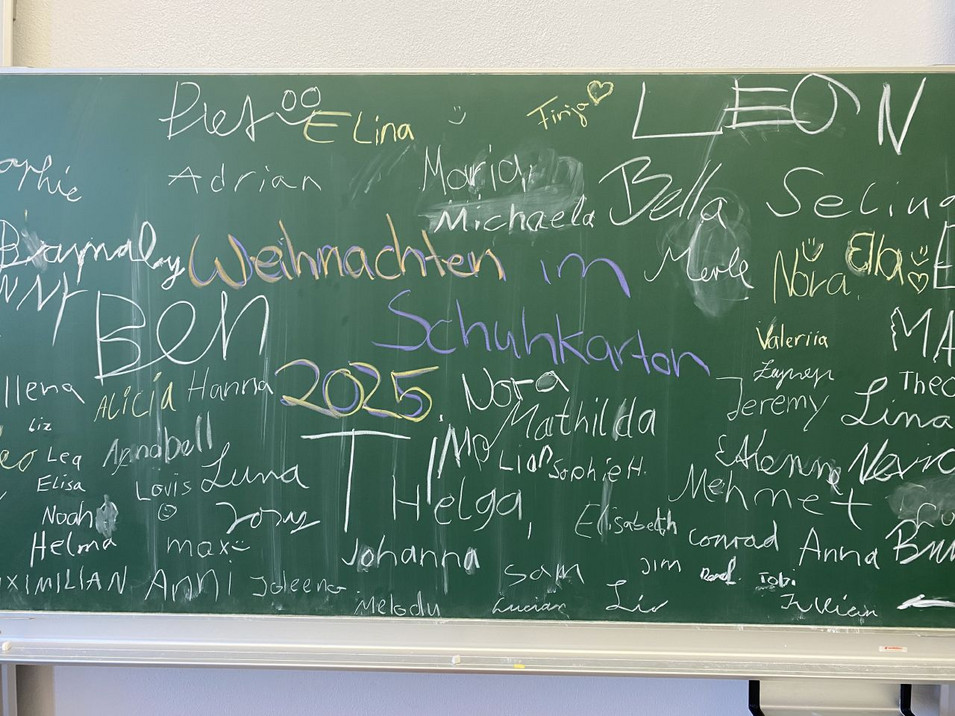 Piet
Elina
Finja
LEON
Adrian
Maria
Bella
Selina
Michaela
Weihnachten im
Merle
Nora
Ella
BEN
Schuhkarton
Valeriia
Zeynep
Alicia
Hanna
2025
Nora
Jeremy
Theo
Lina
Liz
Mathilda
TIMO
Lea
Annabell
Luna
Lian
Sophie H.
Elisa
Louis
Mehmet
Noah
Helga,
Elisabeth
Conrad
Anna
Helma
max
Johanna
Jim
Sam
Tobi
Anni
Joleena
Melody
Lucian
Liv